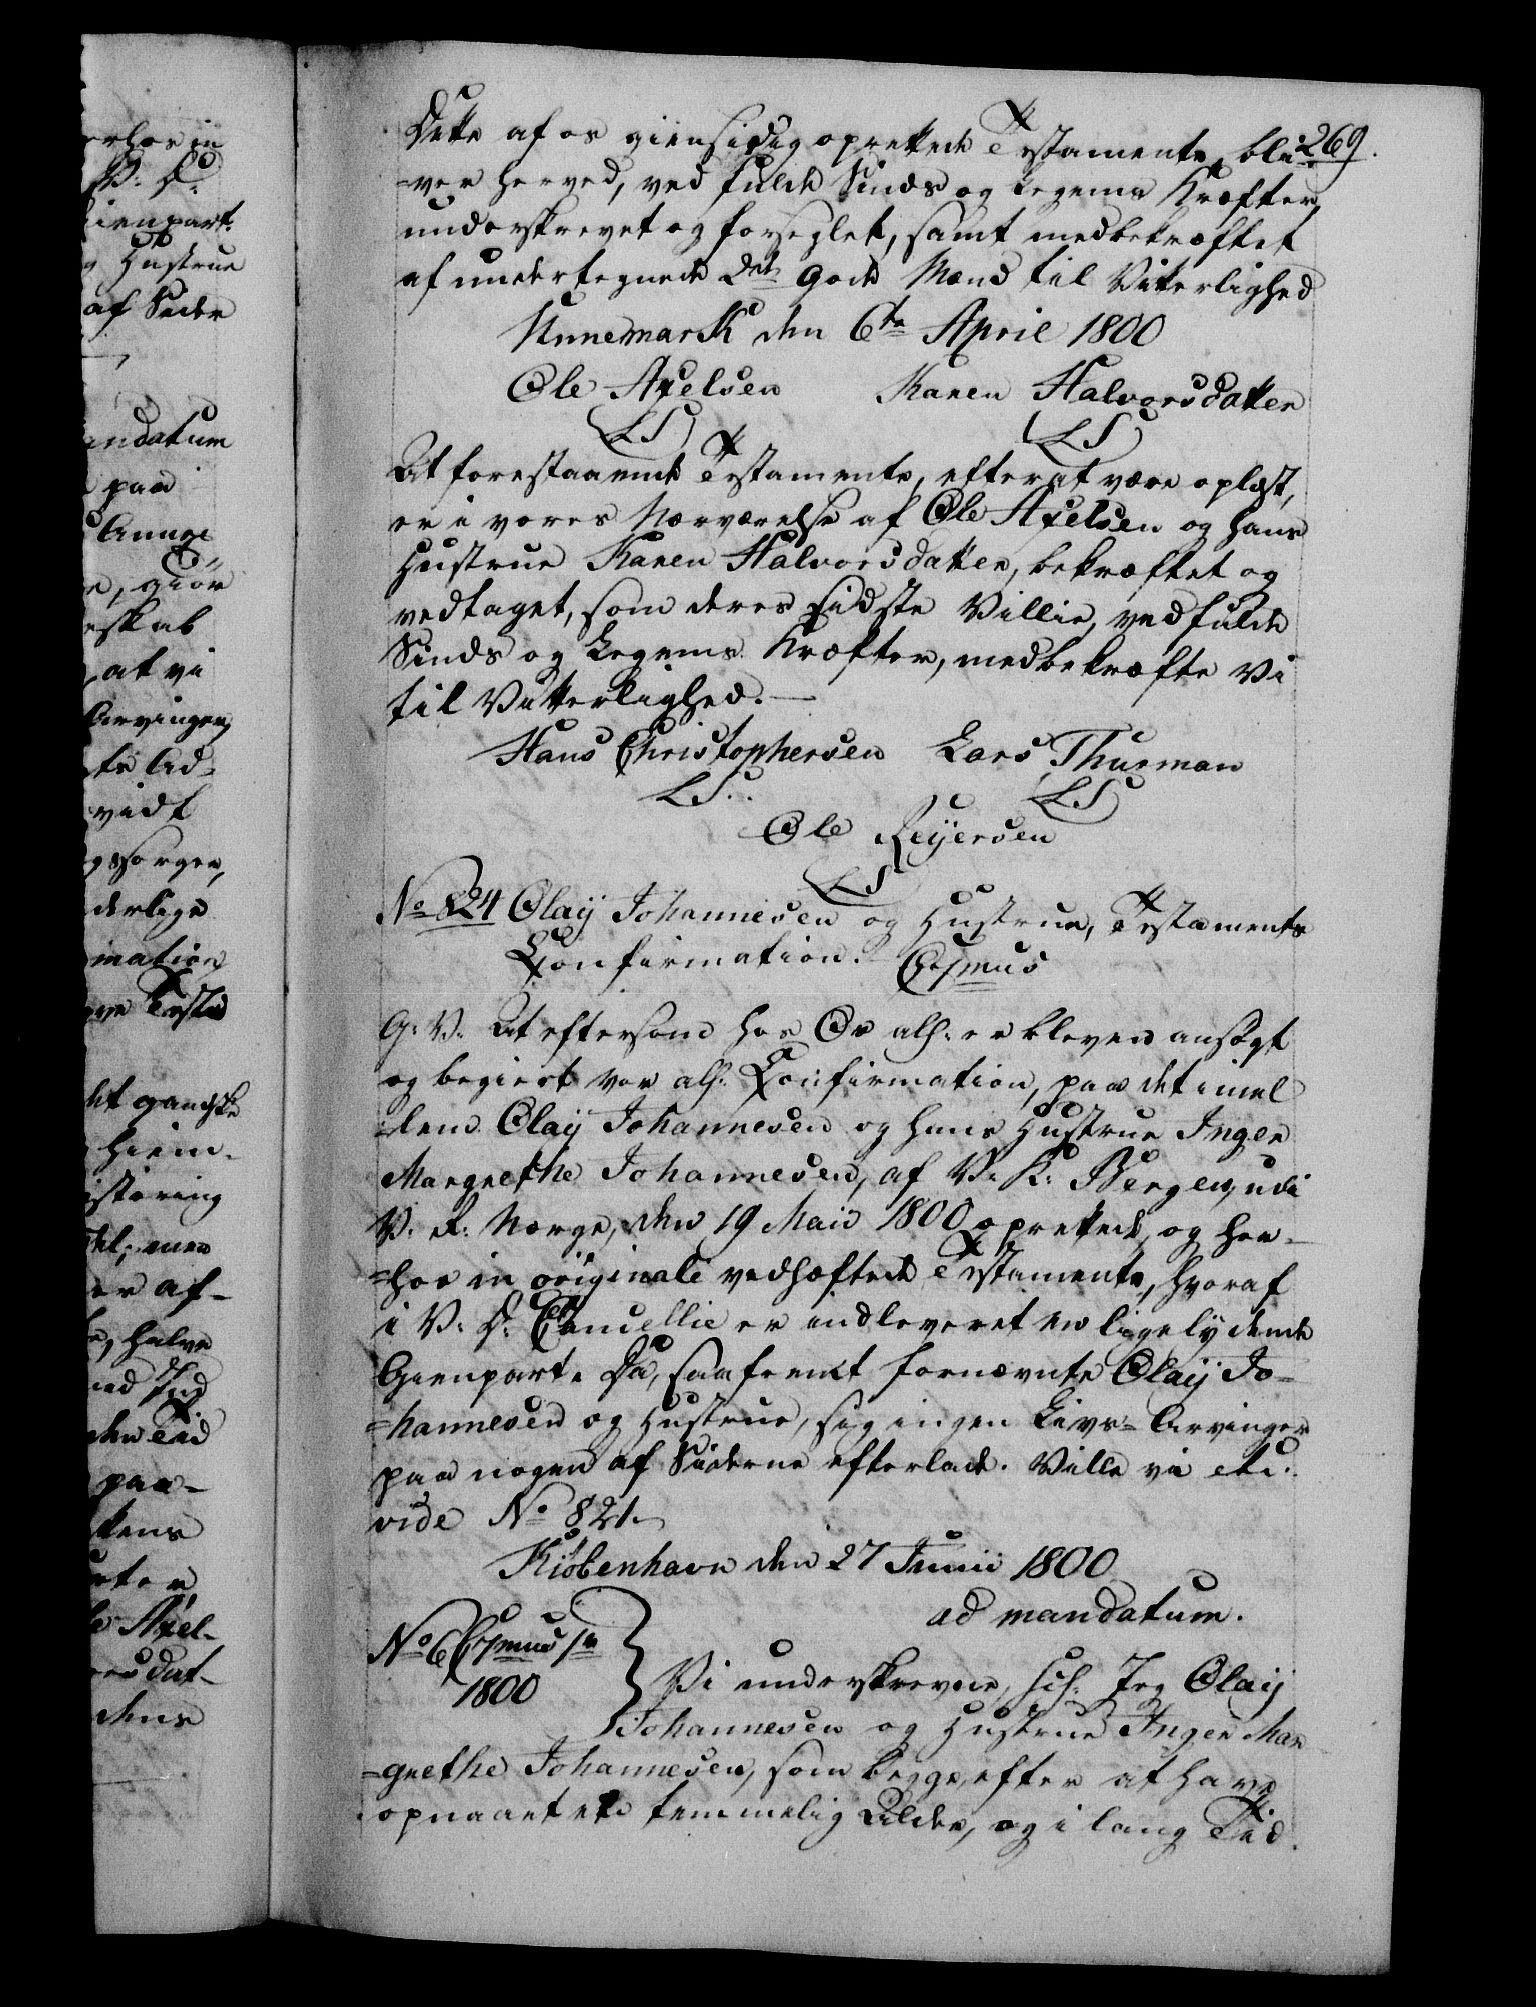 269.
Dette af os giensidig oprettede Testamente, bli-
=ver herved, ved fulde Sinds og Legems Kræfter,
underskrevet og forseglet, samt medbekræftet
af undertegnede Dnd. Gode Mænd til Vitterlighed
Unnemark den 6te April 1800
Ole Axelsen Karen Halvorsdatter
LS LS
At forestaaende Testamente, efter at være oplæst,
er i vores Nærværelse af Ole Axelsen og hans
Hustrue Karen Halvorsdatter, bekræftet og
vedtaget, som deres sidste Villie, ved fulde
Sinds og Legems Kræfter, medbekræfte Vi
til Vitterlighed.
Hans Christophersen Lars Thurman
LS. LS
Ole Reijersen
LS
No 824 Olaij Johannesen og Hustrue, Testaments
Confirmation.
G: V: At eftersom hos Os alh: er bleven ansøgt
og begiert vor alh: Confirmation, paa det imel
=lem Olaij Johannesen og hans Hustrue Inger
Margrethe Johannesen, af V: K: Bergen, udi
V: R: Norge, den 19 Maii 1800 oprettede, og her-
=hos in originali vedhæftede Testamente, hvoraf
i V: D: Cancellie er indleveret en ligelydende
Gienpart. Da, saafremt fornævnte Olaij Jo-
=hannesen og Hustrue, sig ingen Livs=Arvinger
paa nogen af Siderne efterlade. Ville vi etc.
vide No 821.
Kiøbenhavn den 27 Junii 1800
ad mandatum.
No 6
1800
Vi underskrevne, Jeg Olaij
Johannesen og Hustrue Inger Mar
=grethe Johannesen, som begge, efter at have
opnaaet et temmelig Alder, og i lang Tid